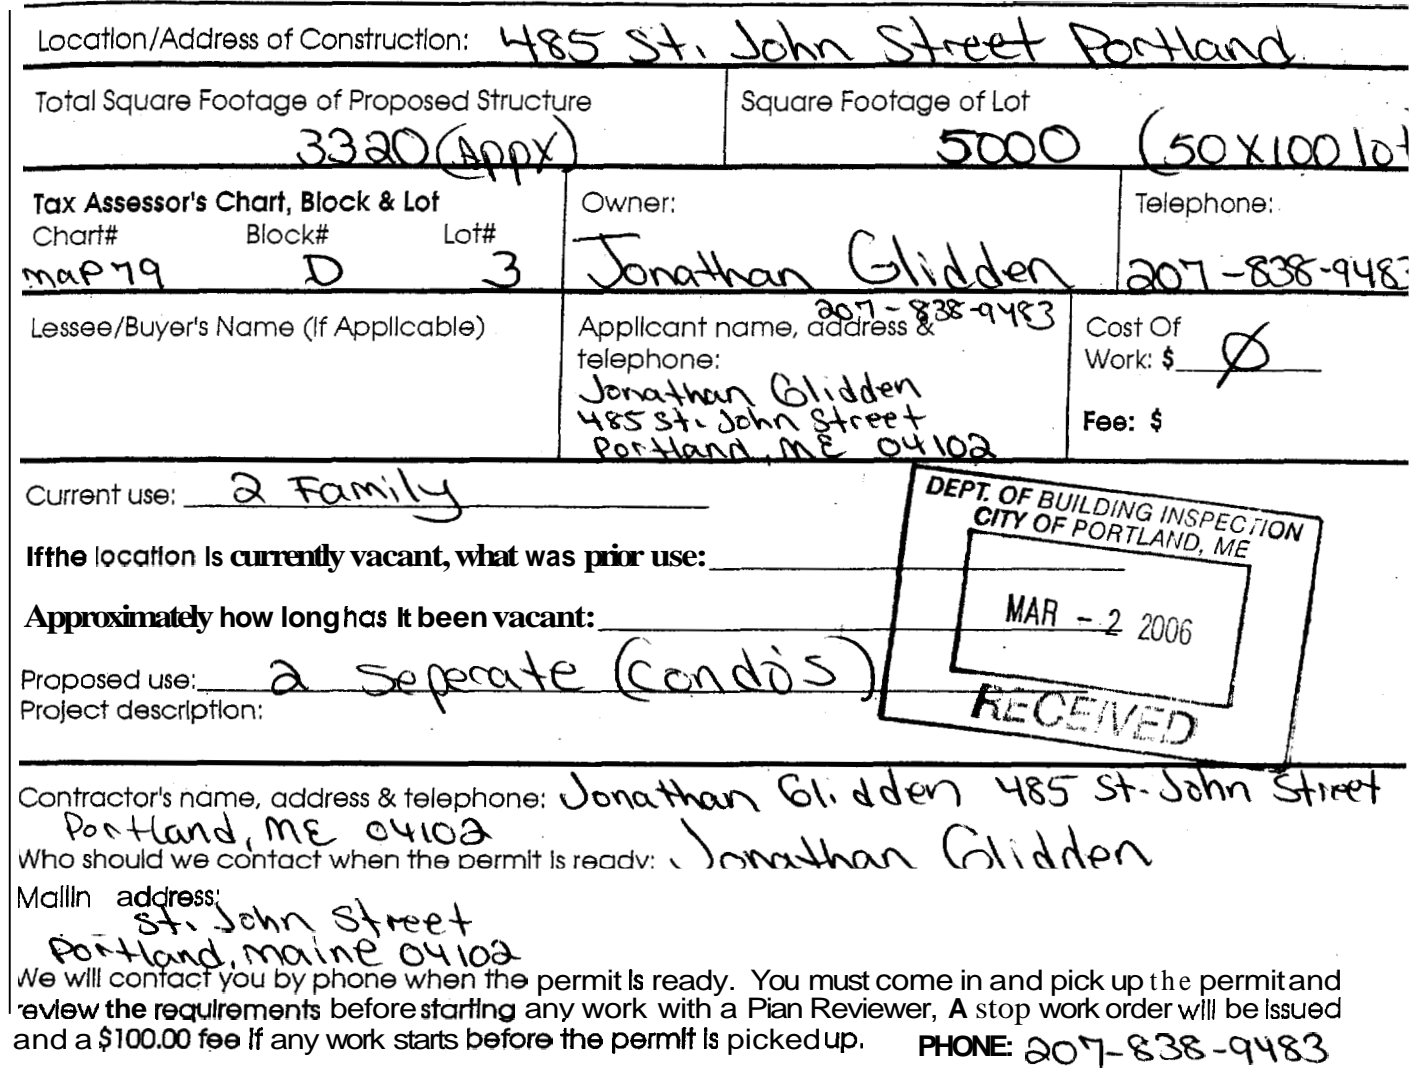 Location/Address of Construction: 485 St. John Street Portland
Total Square Footage of Proposed Structure
3320 (Appx)
Square Footage of Lot
5000 (50 X 100 lot
Tax Assessor's Chart, Block & Lot
Chart# Block# Lot#
map 79 D 3
Owner:
Jonathan Glidden
Telephone:
207-838-9483
Lessee/Buyer's Name (If Applicable)
207-838-9483
Applicant name, address &
telephone:
Jonathan Glidden
485 St. John Street
Portland, ME 04102
Cost Of
Work: $ Ø
Fee: $
Current use: 2 Family
If the location is currently vacant, what was prior use:
Approximately how long has it been vacant:
Proposed use: 2 Seperate (Condo's)
Project description:
DEPT. OF BUILDING INSPECTION
CITY OF PORTLAND, ME
MAR - 2 2006
RECEIVED
Contractor's name, address & telephone: Jonathan Glidden 485 St. John Street
Portland, ME 04102
Who should we contact when the permit is ready: Jonathan Glidden
Mailin address:
St. John Street
Portland, Maine 04102
We will contact you by phone when the permit is ready. You must come in and pick up the permit and
review the requirements before starting any work with a Pian Reviewer, A stop work order will be issued
and a $100.00 fee if any work starts before the permit is picked up. PHONE: 207-838-9483